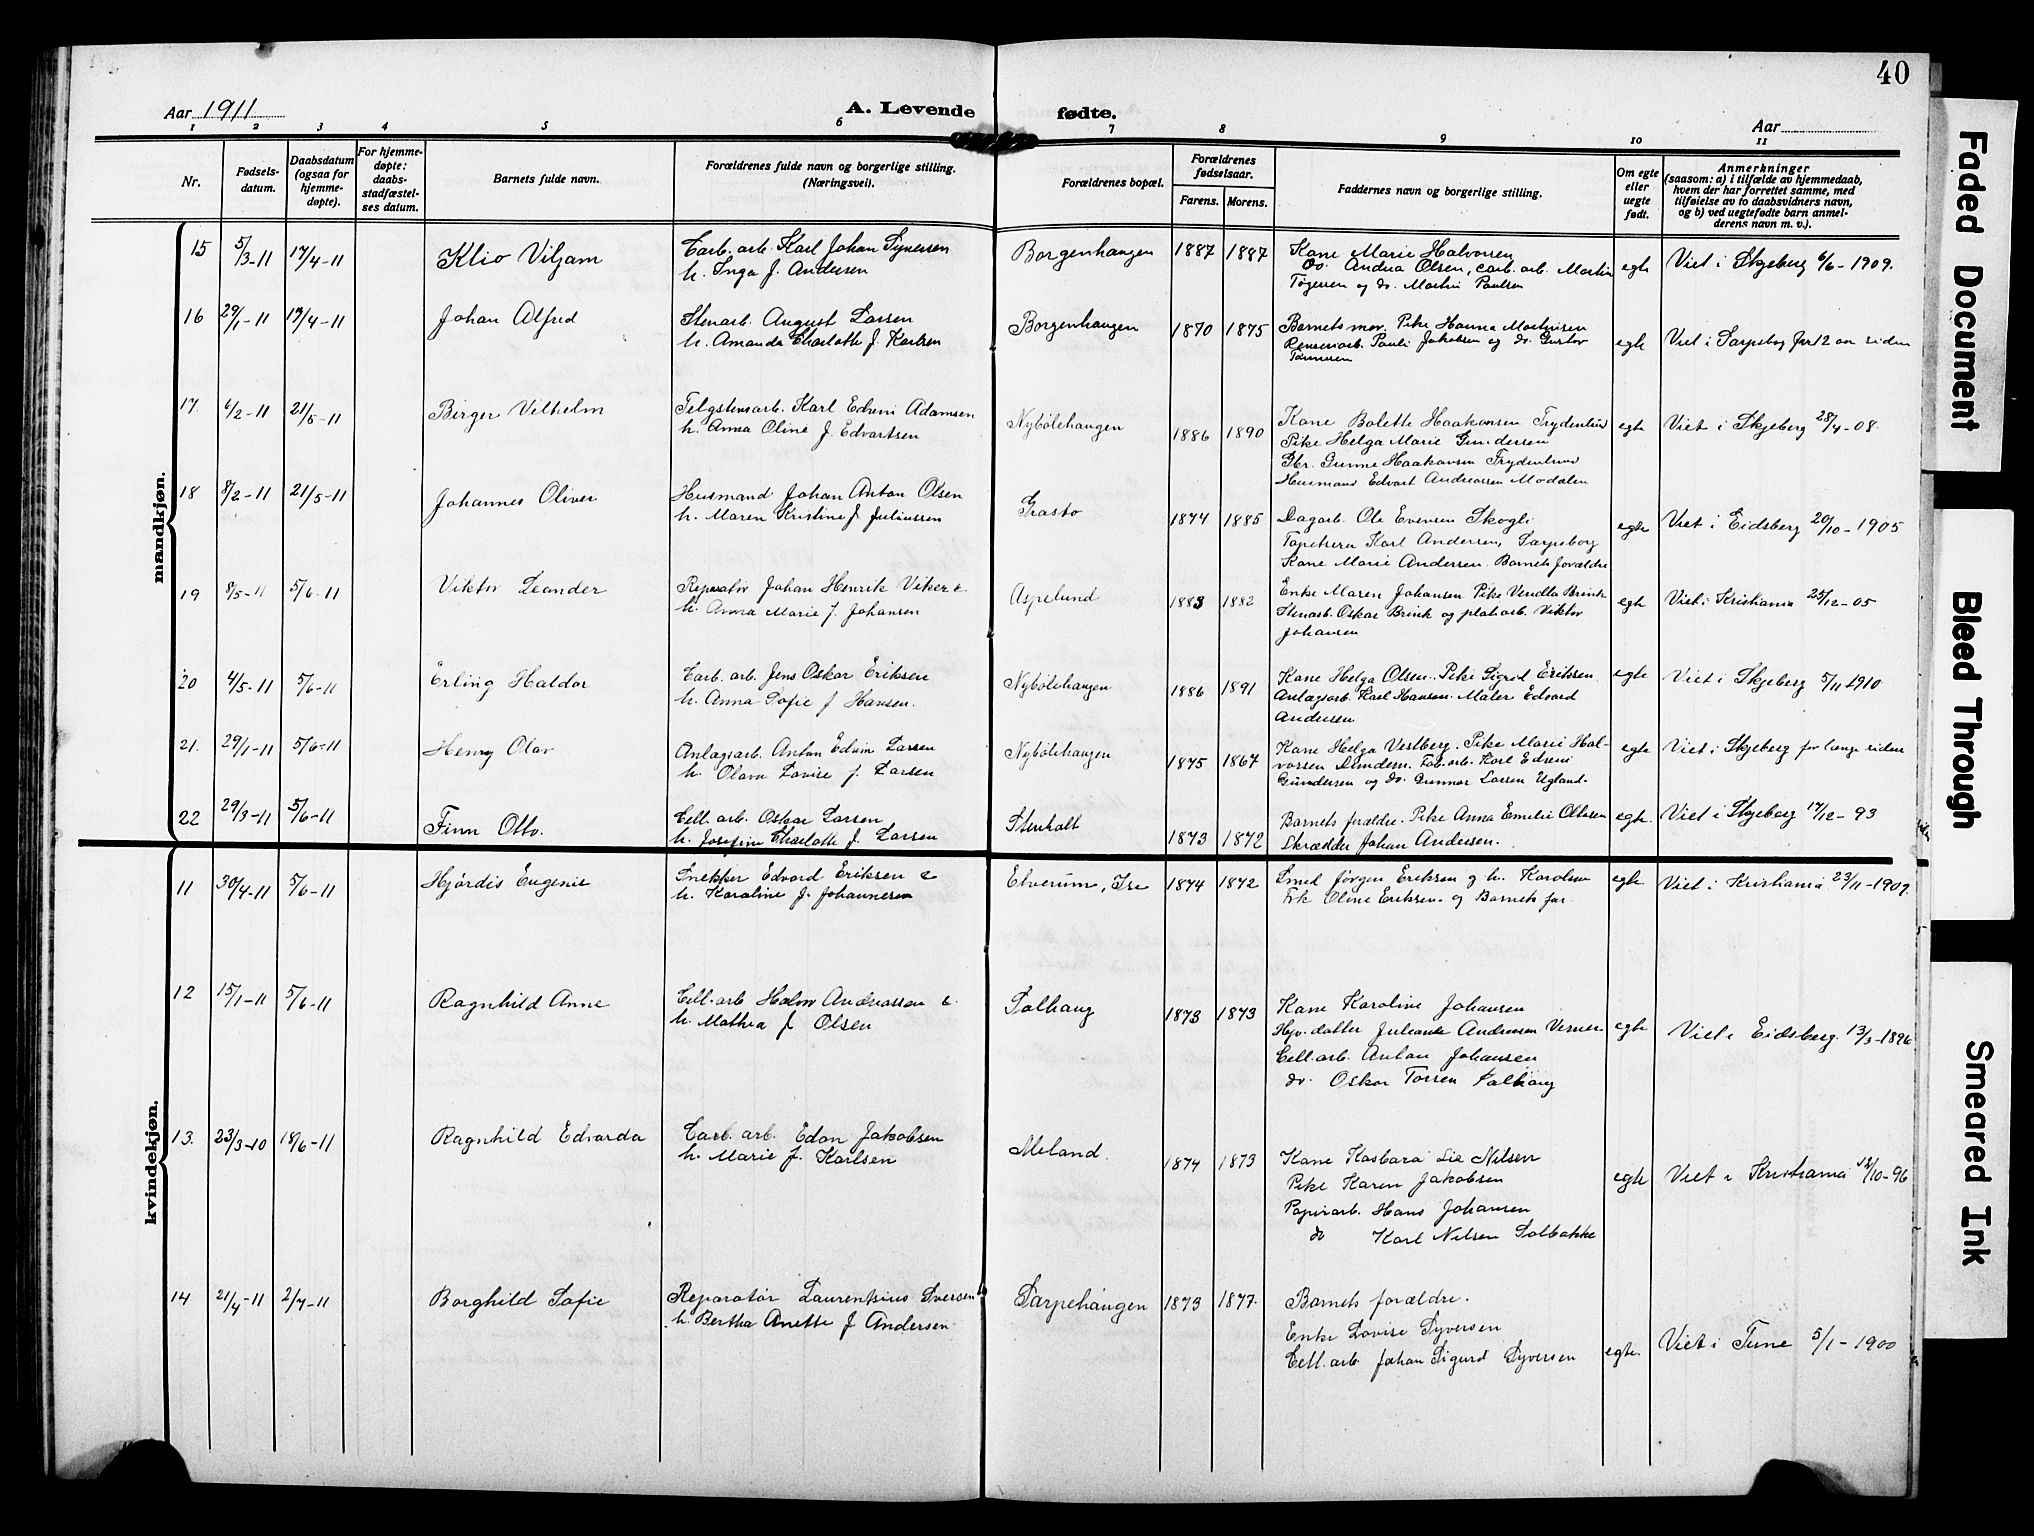 40
Aar 1911
A. Levende
fødte.
Aar
1 2 3 4 5 6 7 8 9 10 11
Nr.
Fødsels-
datum.
Daabsdatum
(ogsaa for
hjemme-
døpte).
For hjemme-
døpte:
daabs-
stadfæstel-
ses datum.
Barnets fulde navn.
Forældrenes fulde navn og borgerlige stilling.
(Næringsvei).
Forældrenes bopæl.
Forældrenes
fødselsaar.
Farens. Morens.
Faddernes navn og borgerlige stilling.
Om egte
eller
uegte
født.
Anmerkninger
(saasom: a) i tilfælde av hjemmedaab,
hvem der har forrettet samme, med
tilføielse av to daabsvidners navn,
og b) ved uegtefødte barn anmel-
derens navn m. v.).
mandkjøn.
15 5/3-11 17/4-11 Klio Viljam
Carb. arb. Karl Johan Syversen
h. Inga f. Andersen
Borgenhaugen 1887 1887
Kone Marie Halvorsen
Do. Andrea Olsen, carb. arb. Martin
Tøgersen og do. Martin Paulsen
egte Viet i Skjeberg 6/6-1909.
16 29/1-11 19/4-11 Johan Alfred
Stenarb. August Larsen
h. Amanda Charlotte f. Karlsen
Borgenhaugen 1870 1875
Barnets mor. Pike Hanna Martinsen
Renseriarb. Pauli Jakobsen og do. Gustav
egte Viet i Sarpsborg for 12 aar siden
17. 6/2-11 21/5-11 Birger Vilhelm
Telgstensarb. Karl Edvin Adamsen
h. Anna Oline f. Edvartsen
Nybölehaugen 1886 1890
Kone Bolette Haakonsen Frydenlund
Pike Helga Marie Gundersen
Gbr. Gunne Haakonsen Frydenlund
Husmand Edvart Andreassen Modalen
egte Viet i Skjeberg 28/4-08.
18 8/2-11 21/5-11 Johannes Oliver
Husmand Johan Anton Olsen
h. Maren Kristine f. Juliussen
Grastø 1874 1885
Dagarb. Ole Evensen Skogli
Tapetserer Karl Andersen, Sarpsborg
Kone Marie Andersen. Barnets forældre
egte Viet i Eidsberg 20/10-1905
19 8/5-11 5/6-11 Viktor Leander
Reparatør Johan Henrik Viker &
h. Anna Marie f. Johansen
Aspelund 1883 1882
Enke Maren Johansen Pike Vendla Brink
Stenarb. Oskar Brink og platarb. Viktor
Johansen
egte Viet i Kristiania 25/12-05
20 4/5-11 5/6-11 Erling Haldor
Carb. arb. Jens Oskar Eriksen
h. Anna Sofie f. Hansen.
Nybölehaugen 1886 1891
Kone Helga Olsen. Pike Sigrid Eriksen
Anlægsarb. Karl Hansen. Maler Edvard
Andersen
egte Viet i Skjeberg 5/11 1910
21. 29/1-11 5/6-11 Henry Olav
Anlægsarb. Anton Edvin Larsen
h. Olava Lovise f. Larsen
Nybölehaugen 1875 1867
Kone Helga Vestberg. Pike Marie Hal-
vorsen Lundern. Fab. arb. Karl Edvin
Gundersen og do. Gunnar Larsen Ugland.
egte Viet i Skjeberg for længe siden
22 29/3-11 5/6-11 Finn Otto.
Cell. arb. Oskar Larsen
h. Josefine Charlotte f. Larsen
Stenholt 1873 1872
Barnets forældre. Pike Anna Emelie Ottesen
Skrædder Johan Andersen.
egte Viet i Skjeberg 17/12-93
kvindekjøn.
11 30/4-11 5/6-11 Hjördis Eugenie
Snekker Edvard Eriksen &
h. Karoline f. Johannesen
Elverum, Ise 1874 1872
Smed Jörgen Eriksen og h. Karolsen
Frk Oline Eriksen. og Barnets far.
egte Viet i Kristiania 23/11-1907.
12 15/1-11 5/6-11 Ragnhild Anne
Cell. arb Halvor Andreassen &
h. Mathea f Olsen
Solhaug 1873 1873
Kone Karoline Johansen
Hjv. datter Juliane Andreasen Verner
Cell. arb. Anton Johansen
do. Oskar Torsen Solhaug
egte Viet i Eidsberg. 13/3-1896
13. 23/3-10 18/6-11 Ragnhild Edvarda
Carb. arb. Edon Jakobsen
h. Marie f. Karlsen
Meland. 1874 1873
Kone Kasbara Lie Nilsen
Pike Karen Jakobsen
Papirarb. Hans Johansen
do Karl Nilsen Solbakke
egte Viet i Kristiania 12/10-96
14 21/4-11 2/7-11 Borghild Sofie
Reparatör Laurentsius Syversen
h. Bertha Anette f Andersen
Sarpehaugen 1873 1877.
Barnets forældre.
Enke Lovise Syversen
Cell. arb Johan Sigurd Syversen
egte. Viet i Tune 5/1-1900
Faded Document
Bleed Through
Smeared Ink